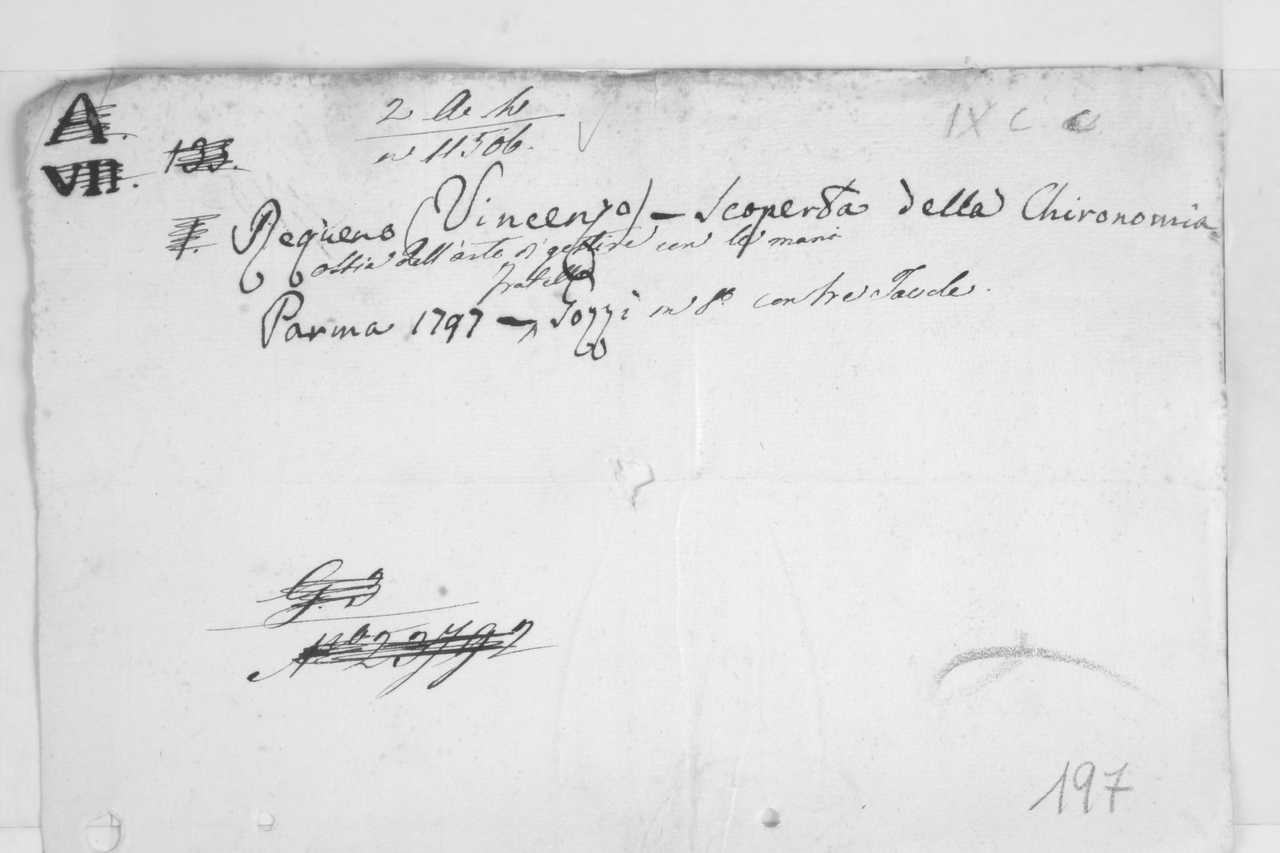 A.
VII. 133.
2 A h
n 11506.
IX C C
Requeno (Vincenzo) — Scoperta della Chironomia
ossia dell'arte di gestire con le mani
fratelli
Parma 1797 — Gozzi in 8° con tre Tavole.
G. 3
N° 23792
197